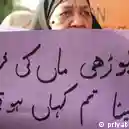 بوڑھی ماں کی
تم کہاں ہو
© privat